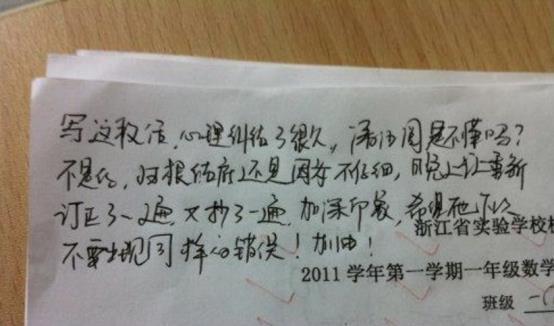 写这段话，心理纠结了很久，满江周是不懂吗？
不是的，归根结底还是因为不仔细，晚上让重新
订正了一遍 又抄了一遍 加深印象，希望他下次
不要出现同样的错误！加油！
浙江省实验学校
2011 学年第一学期一年级数学
班级 二